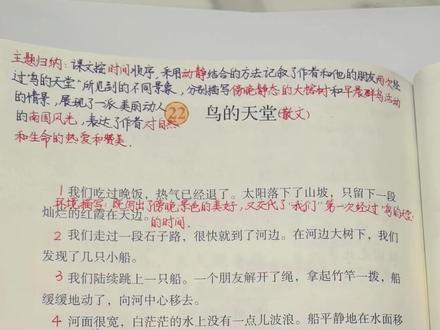 主题归纳：课文按时间顺序，采用动静结合的方法记叙了作者和他的朋友两次经
过“鸟的天堂”所见到的不同景象，分别描写傍晚静态的大榕树和早晨群鸟活动
的情景，展现了一派美丽动人
的南国风光，表达了作者对自然
和生命的热爱和赞美．
22 鸟的天堂(散文)
1 我们吃过晚饭，热气已经退了。太阳落下了山坡，只留下一段
环境描写：既写出了傍晚景色的美好，又交代了“我们”第一次经过“鸟的天堂”
灿烂的红霞在天边。
的时间．
2 我们走过一段石子路，很快就到了河边。在河边大树下，我们
发现了几只小船。
3 我们陆续跳上一只船。一个朋友解开了绳，拿起竹竿一拨，船
缓缓地动了，向河中心移去。
4 河面很宽，白茫茫的水上没有一点儿波浪。船平静地在水面移